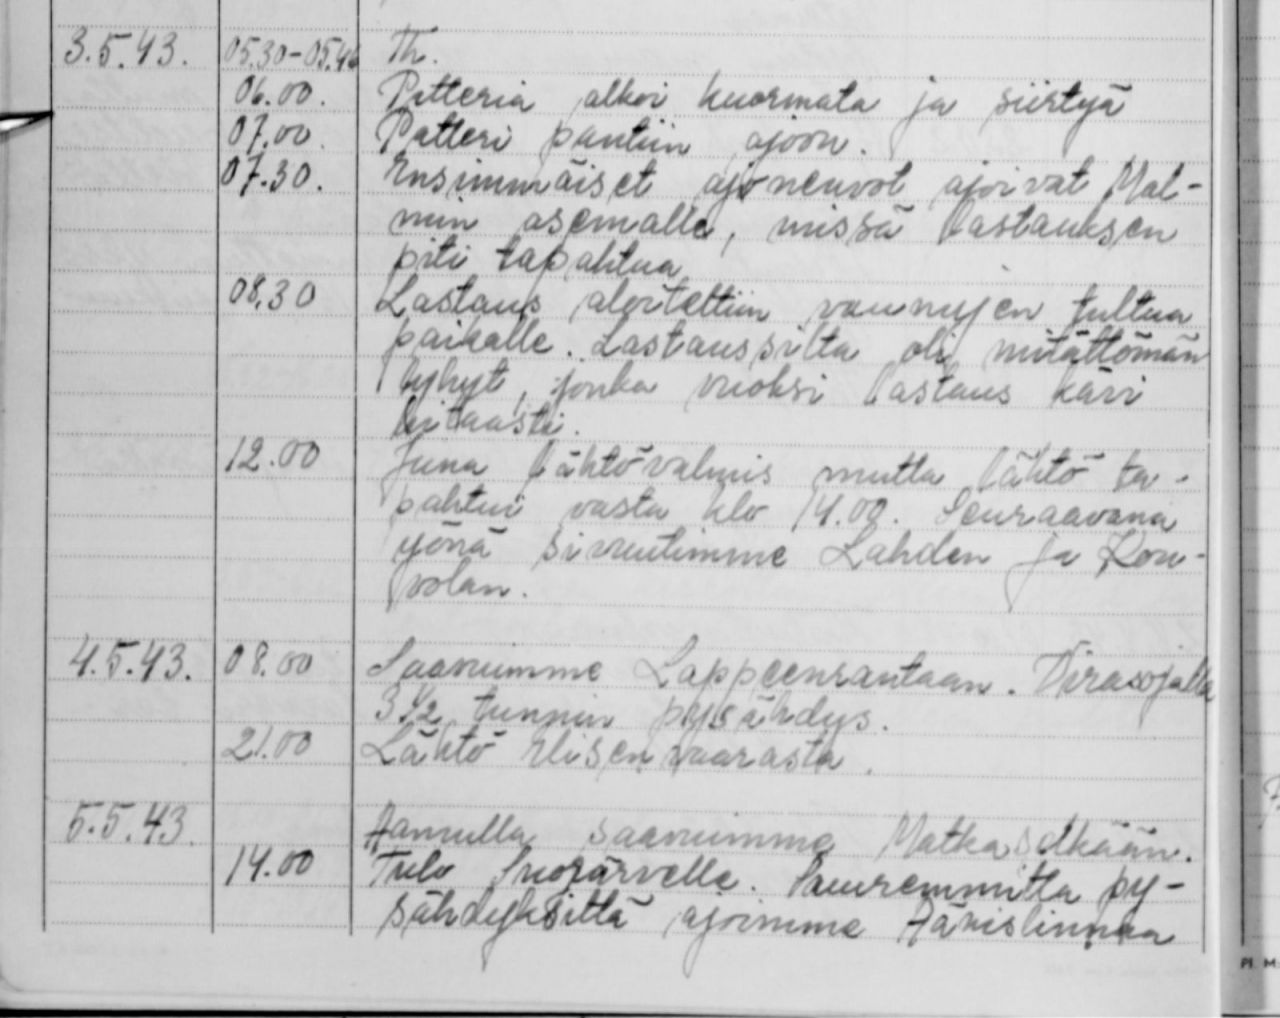 3.5.43. 05.30-05.46 Th.
06.00. Patteria alkoi kuormata ja siirtyä
07.00. Patteri pantiin ajoon.
07.30. Ensimmäiset ajoneuvot ajoivat Mal-
min asemalle, missä lastauksen
piti tapahtua.
08.30 Lastaus aloitettiin vaunujen tultua
paikalle. Lastaussilta oli mitättömän
lyhyt, jonka vuoksi lastaus kävi
hitaasti.
12.00 Juna lähtövalmis mutta lähtö ta-
pahtui vasta klo 14.00. Seuraavana
yönä sivuutimme Lahden ja Kou-
volan.
4.5.43. 08.00 Saavuimme Lappeenrantaan.
3 1/2 tunnin pysähdys.
21.00 Lähtö Elisenvaarasta.
5.5.43. Aamulla saavuimme Matkaselkään.
14.00 Tulo Suojärvelle. Suuremmitta py-
sähdyksittä ajoimme Äänislinnaa
Pl. M.